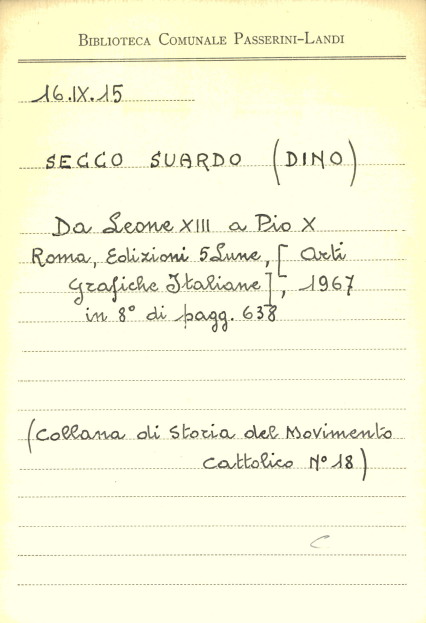 BIBLIOTECA COMUNALE PASSERINI-LANDI
16.IX.15
SECCO SUARDO (DINO)
Da Leone XIII a Pio X
Roma, Edizioni 5 Lune, [Arti
Grafiche Italiane], 1967
in 8° di pagg. 638
(Collana di Storia del Movimento
Cattolico N° 18)
C